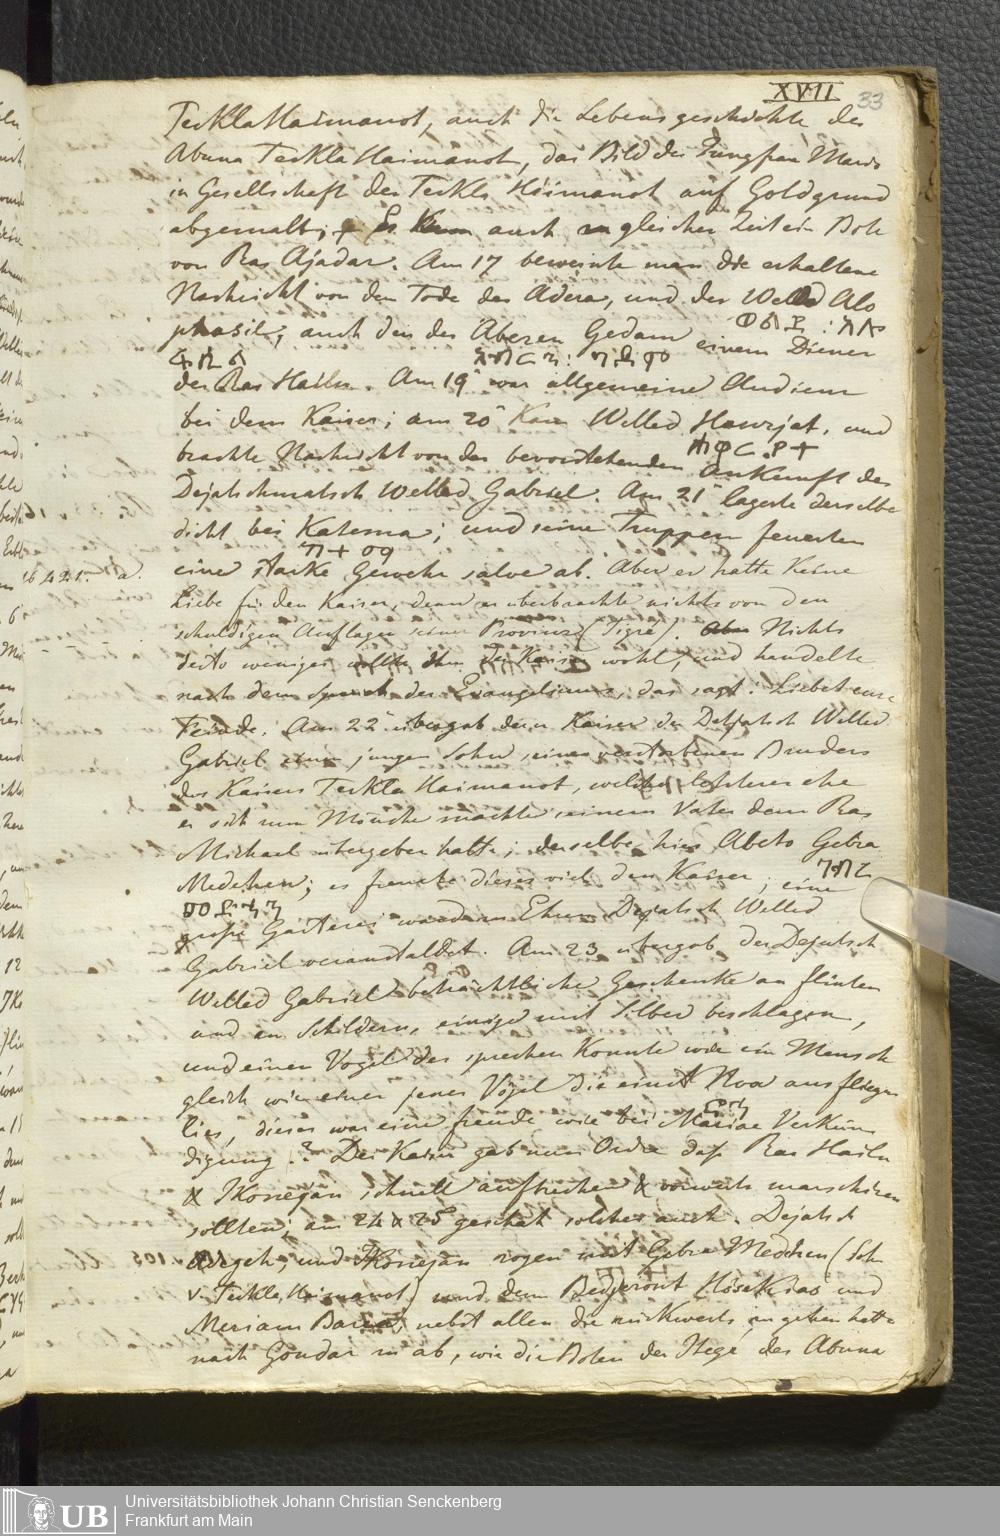 XVII 33
Teckla Haimanot, auch die Lebensgeschichte des
Abuna Teckla Haimanot, das Bild der Jungfrau Maria
in Gesellschaft des Teckla Haimanot auf Goldgrund
abgemalt; Es kam auch zu gleicher Zeit ein Bote
von Ras Ajadar. Am 17 beweinte man die erhaltene
Nachricht von dem Tode des Adera, und des Welled
auch den des Aberen Gedam einem Diener
des Ras Hailu. Am 19 war allgemeine Audienz
bei dem Kaiser; am 20 kam Welled Hawrjat, und
brachte Nachricht von der bevorstehenden Ankunft des
Dejatschmatsch Welled Gabriel. Am 21 lagerte derselbe
dicht bei Katema; und seine Truppen feuerten
eine starke Gewehr salve ab. Aber er hatte keine
Liebe für den Kaiser, denn er überbrachte nichts von den
schuldigen Auflagen seiner Provinz (Tigre). Nichts
desto weniger wollte ihm der Kaiser wohl, und handelte
nach dem Spruch des Evangeliums, das sagt: Liebet eure
Feinde. Am 22 übergab dem Kaiser der Dejatsch Welled
Gabriel einen jungen Sohn seines verstorbenen Bruders
des Kaisers Teckla Haimanot, welchen letzterer ehe
er sich zum Mönche machte seinem Vater dem Ras
Michael übergeben hatte; derselbe hies Abeto Gebra
Medehen; es freute dieses viel den Kaiser; eine
große Gasterei wurde zu Ehren Dejatsch Welled
Gabriel veranstaldet. Am 23 übergab der Dejatsch
Welled Gabriel beträchtliche Geschenke an flinten
und an Schildern, einige mit Silber beschlagen,
und einen Vogel der sprechen konnte wie ein Mensch
gleich wie einer jener Vögel die einst Noa ausfliegen
lies, dieses war eine freude wie bei Mariae Verkün
digung !? Der Kaiser gab nun Ordre daß Ras Hailu
& schnell aufbrechen & vorwerts marschiren
sollten; am 24 & 25 geschah solches auch. Dejatsch
und zogen mit Gebra Medehen (Sohn
v. Teckla Haimanot) und dem und
Meriam Barea, nebst allen die rückwerts zu gehen hatten
nach Gondar zu ab, wie die Boten der Itege, des Abuna
Universitätsbibliothek Johann Christian Senckenberg
Frankfurt am Main
UB